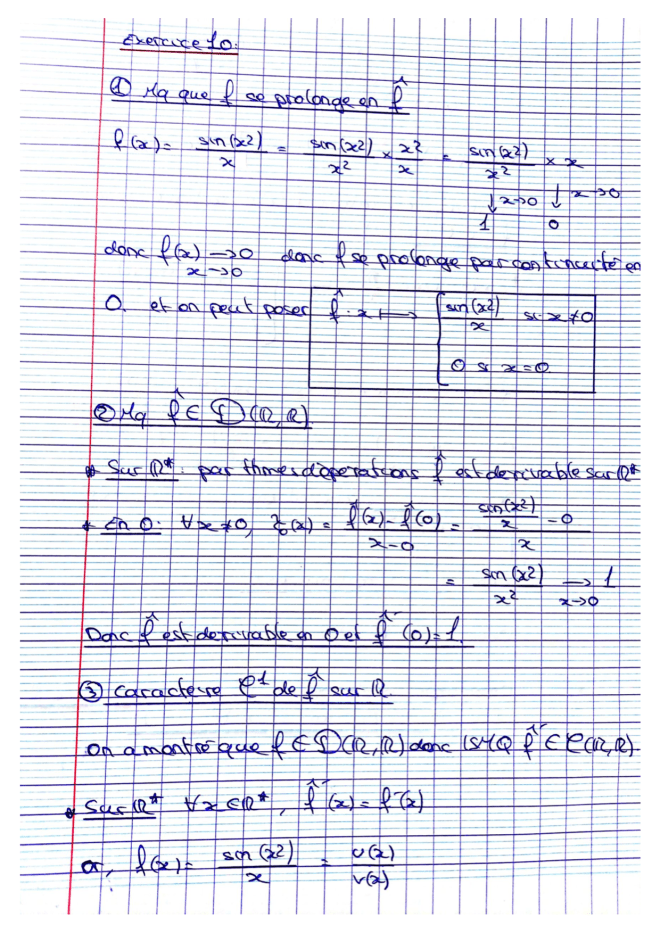 Exercice 10.
① Mq que f se prolonge en f̂
f(x) = sin(x²)/x = sin(x²)/x² × x²/x = sin(x²)/x² × x
↓ x→0 ↓ x→0
1 0
donc f(x) → 0 donc f se prolonge par continuité en
x→0
0. et on peut poser f̂ : x ⟼ { sin(x²)/x si x ≠ 0
0 si x = 0
② Mq f̂ ∈ D(ℝ, ℝ)
* Sur ℝ* : par thmes d'operations f̂ est derivable sur ℝ*
* En 0 : ∀x ≠ 0, τ₀(x) = (f̂(x) - f̂(0))/(x - 0) = (sin(x²)/x - 0)/x
= sin(x²)/x² → 1
x→0
Donc f̂ est derivable en 0 et f̂'(0) = 1.
③ caractere C¹ de f̂ sur ℝ
on a montré que f ∈ D(ℝ, ℝ) donc ISMQ f̂' ∈ C(ℝ, ℝ).
* Sur ℝ* ∀x ∈ ℝ*, f̂'(x) = f'(x)
or, f(x) = sin(x²)/x = u(x)/v(x)